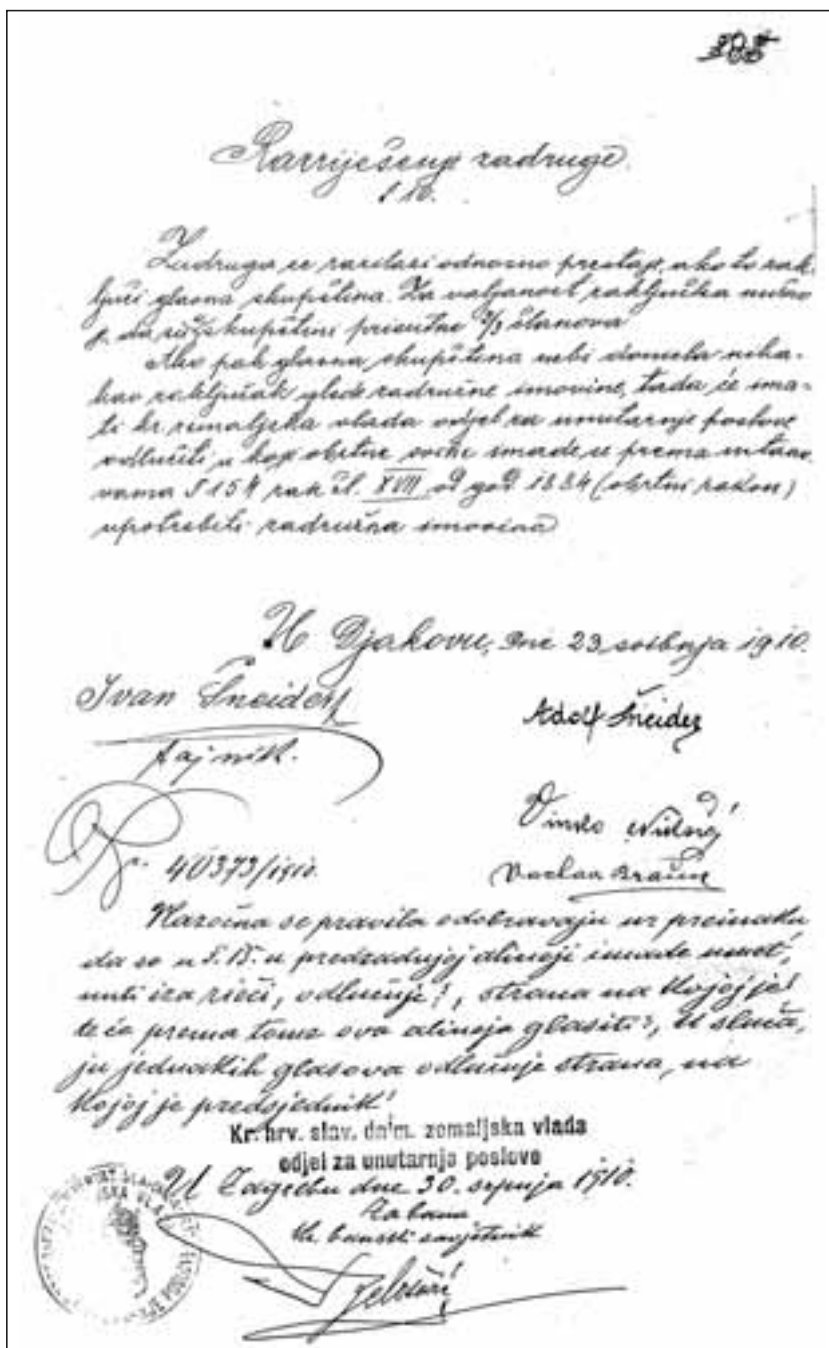 Razriješenje zadruge.
§ 10.
Zadruga se razilazi odnosno prestaje, ako to zak-
ljuči glavna skupština. Za valjanost zaključka nužno
je da su skupštini prisutne 2/3 članova
Ako pak glavna skupština nebi donela nika-
kav zaključak glede zadružne imovine, tada će ima-
ti kr. zemaljska vlada odjel za unutarnje poslove
odlučiti u koje obrtne svrhe imade se prema ustano-
vama § 154 zak čl. XVII od god 1884 (obrtni zakon)
upotrebiti zadružna imovina
U Djakovu, dne 23 svibnja 1910.
Ivan Šneider
tajnik.
Adolf Šneider
Vinko
Vaclav
40373/1910.
Nazočna se pravila odobravaju uz preinaku
da se u §. 15. u predzadnjoj alineji imade umet,
nuti iza rieči, odlučuje!, strana na kojoj je!
te će prema tome ova alineja glasiti:, U sluča,
ju jednakih glasova odlučuje strana, na
kojoj je predsjednik!
Kr. hrv. slav. dalm. zemaljska vlada
odjel za unutarnje poslove
U Zagrebu dne 30. srpnja 1910.
Za bana
kr. banski savjetnik